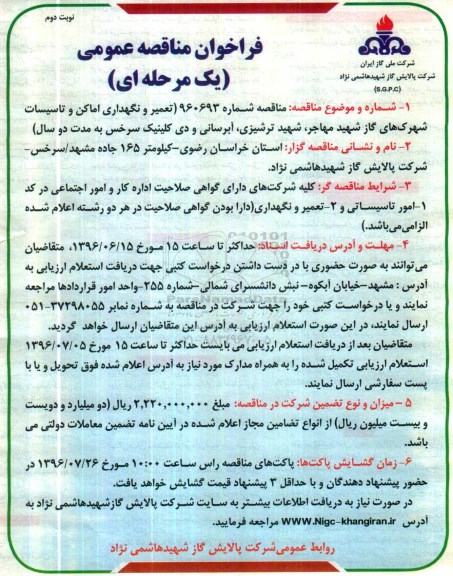 نوبت دوم
شرکت ملی گاز ایران
شرکت پالایش گاز شهیدهاشمی نژاد
(S.G.P.C)
فراخوان مناقصه عمومی
(یک مرحله ای)
۱- شماره و موضوع مناقصه: مناقصه شماره ۹۶۰۶۹۳ (تعمیر و نگهداری اماکن و تاسیسات
شهرک‌های گاز شهید مهاجر، شهید ترشیزی، آبرسانی و دی کلینیک سرخس به مدت دو سال)
۲- نام و نشانی مناقصه گزار: استان خراسان رضوی-کیلومتر ۱۶۵ جاده مشهد/سرخس-
شرکت پالایش گاز شهیدهاشمی نژاد.
۳- شرایط مناقصه گر: کلیه شرکت‌های دارای گواهی صلاحیت اداره کار و امور اجتماعی در کد
۱-امور تاسیساتی و ۲-تعمیر و نگهداری(دارا بودن گواهی صلاحیت در هر دو رشته اعلام شده
الزامی‌می‌باشد.)
۴- مهلت و آدرس دریافت اسناد: حداکثر تا ساعت ۱۵ مورخ ۱۳۹۶/۰۶/۱۵، متقاضیان
می‌توانند به صورت حضوری با در دست داشتن درخواست کتبی جهت دریافت استعلام ارزیابی به
آدرس : مشهد-خیابان آبکوه- نبش دانشسرای شمالی-شماره ۲۵۵-واحد امور قراردادها مراجعه
نمایند و یا درخواست کتبی خود را جهت شرکت در مناقصه به شماره نمابر ۳۷۲۹۸۰۵۵-۰۵۱
ارسال نمایند، در این صورت استعلام ارزیابی به آدرس این متقاضیان ارسال خواهد گردید.
متقاضیان بعد از دریافت استعلام ارزیابی می بایست حداکثر تا ساعت ۱۵ مورخ ۱۳۹۶/۰۷/۰۵
استعلام ارزیابی تکمیل شده را به همراه مدارک مورد نیاز به آدرس اعلام شده فوق تحویل و یا با
پست سفارشی ارسال نمایند.
۵ – میزان و نوع تضمین شرکت در مناقصه: مبلغ ۲,۲۲۰,۰۰۰,۰۰۰ ریال (دو میلیارد و دویست
و بیست میلیون ریال) از انواع تضامین مجاز اعلام شده در آیین نامه تضمین معاملات دولتی می
باشد.
۶- زمان گشایش پاکت‌ها: پاکت‌های مناقصه راس ساعت ۱۰:۰۰ مورخ ۱۳۹۶/۰۷/۲۶ در
حضور پیشنهاد دهندگان و با حداقل ۳ پیشنهاد قیمت گشایش خواهد یافت.
در صورت نیاز به دریافت اطلاعات بیشتر به سایت شرکت پالایش گازشهیدهاشمی نژاد به
آدرس WWW.Nigc-khangiran.ir مراجعه فرمایید.
روابط عمومی‌شرکت پالایش گاز شهیدهاشمی نژاد